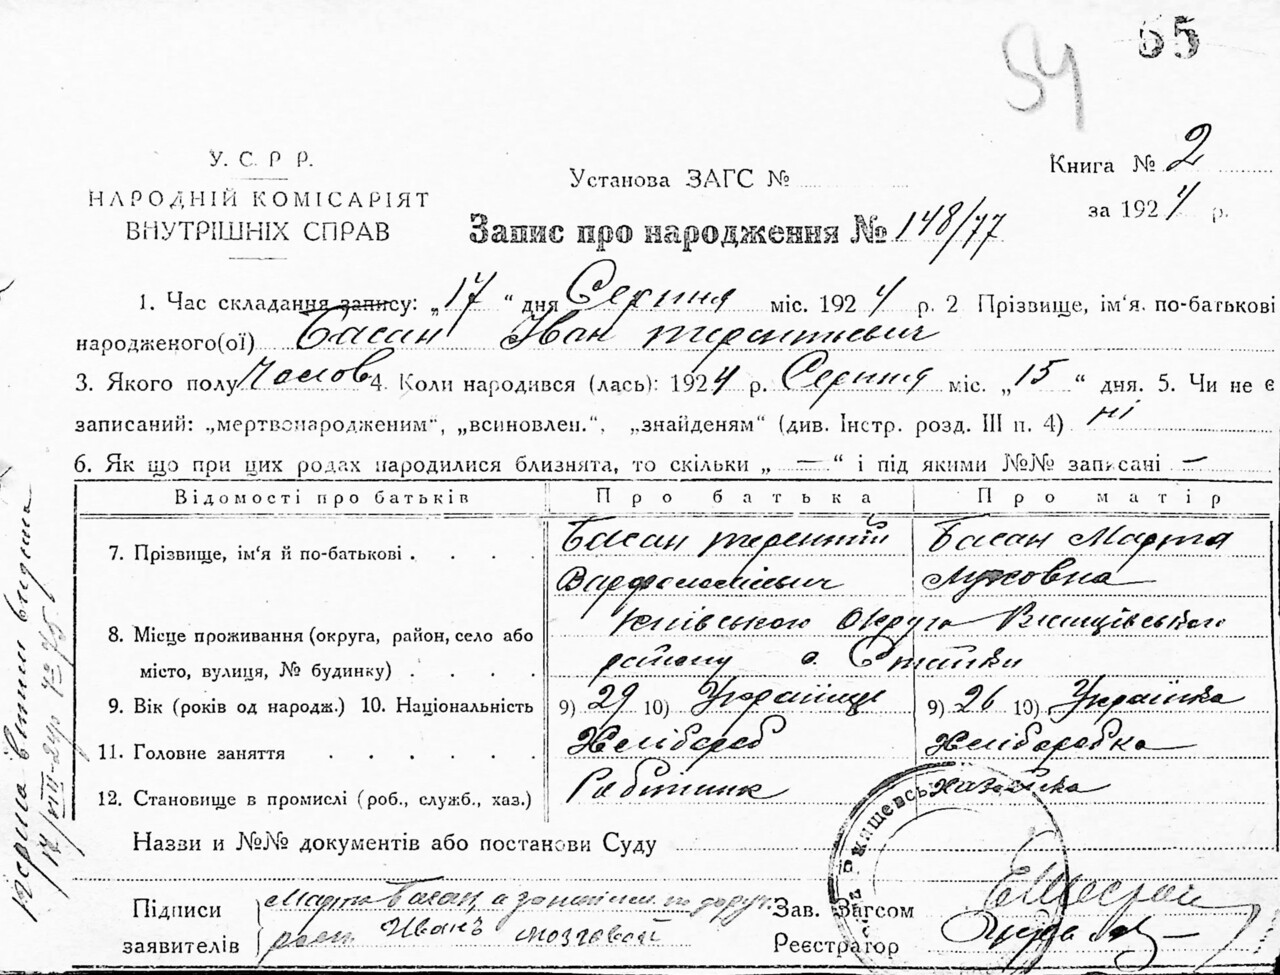 54
55
У. С. Р Р.
НАРОДНІЙ КОМІСАРІЯТ
ВНУТРІШНІХ СПРАВ
Установа ЗАГС №
Книга № 2
за 1924 р.
Запис про народження № 148/77
1. Час складання запису: „17“ дня Серпня міс. 1924 р. 2 Прізвище, ім'я. по-батькові
народженого(ої) Басан Іван терентьевич
3. Якого полу Чолов 4. Коли народився (лась): 1924 р. Серпня міс. „15“ дня. 5. Чи не є
записаний: „мертвонародженим“, „всиновлен.“, „знайденям“ (див. Інстр. розд. III п. 4) ні
6. Як що при цих родах народилися близнята, то скільки „ — “ і під якими №№ записані —
Відомості про батьків Про батька Про матір
7. Прізвище, ім'я й по-батькові . . . . Басан терентій Басан Марта
Варфоломієвич Луковна
8. Місце проживання (округа, район, село або Київського Округа Ржищівського
місто, вулиця, № будинку) . . . . району с. Стайки
9. Вік (років од народж.) 10. Національність 9) 29 10) Українець 9) 26 10) Українка
11. Головне заняття . . . . . . Хлібороб Хліборобка
12. Становище в промислі (роб., служб., хаз.) Робітник хазяйка
Назви и №№ документів або постанови Суду
Підписи Марта Басан а
заявителів Иванъ мозговой
Зав. Загсом
Реєстратор
перша витин видана
17/VIII-24р